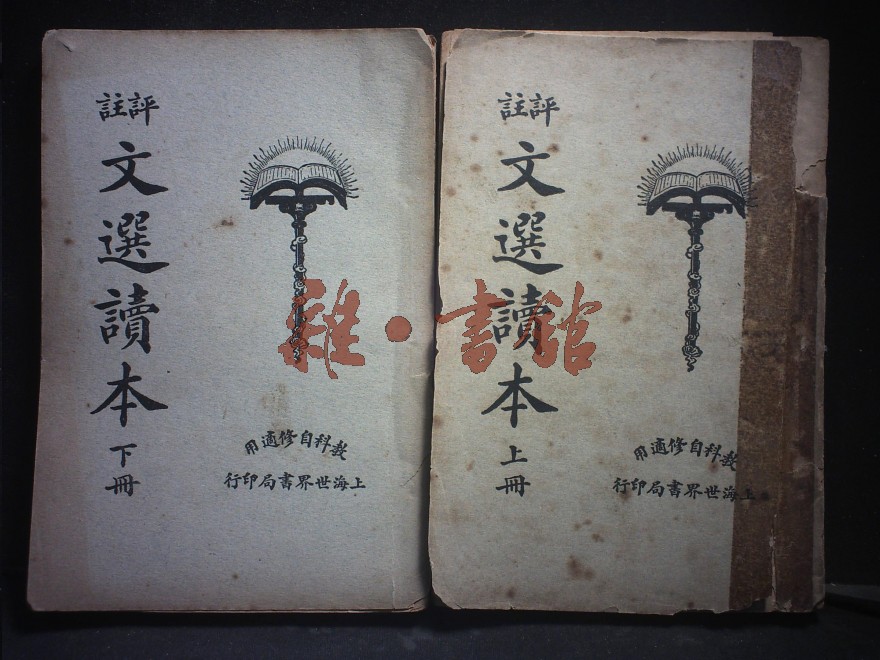 評註
文選讀本
下冊
教科自修適用
上海世界書局印行
評註
文選讀本
上冊
教科自修適用
上海世界書局印行
雜·書館